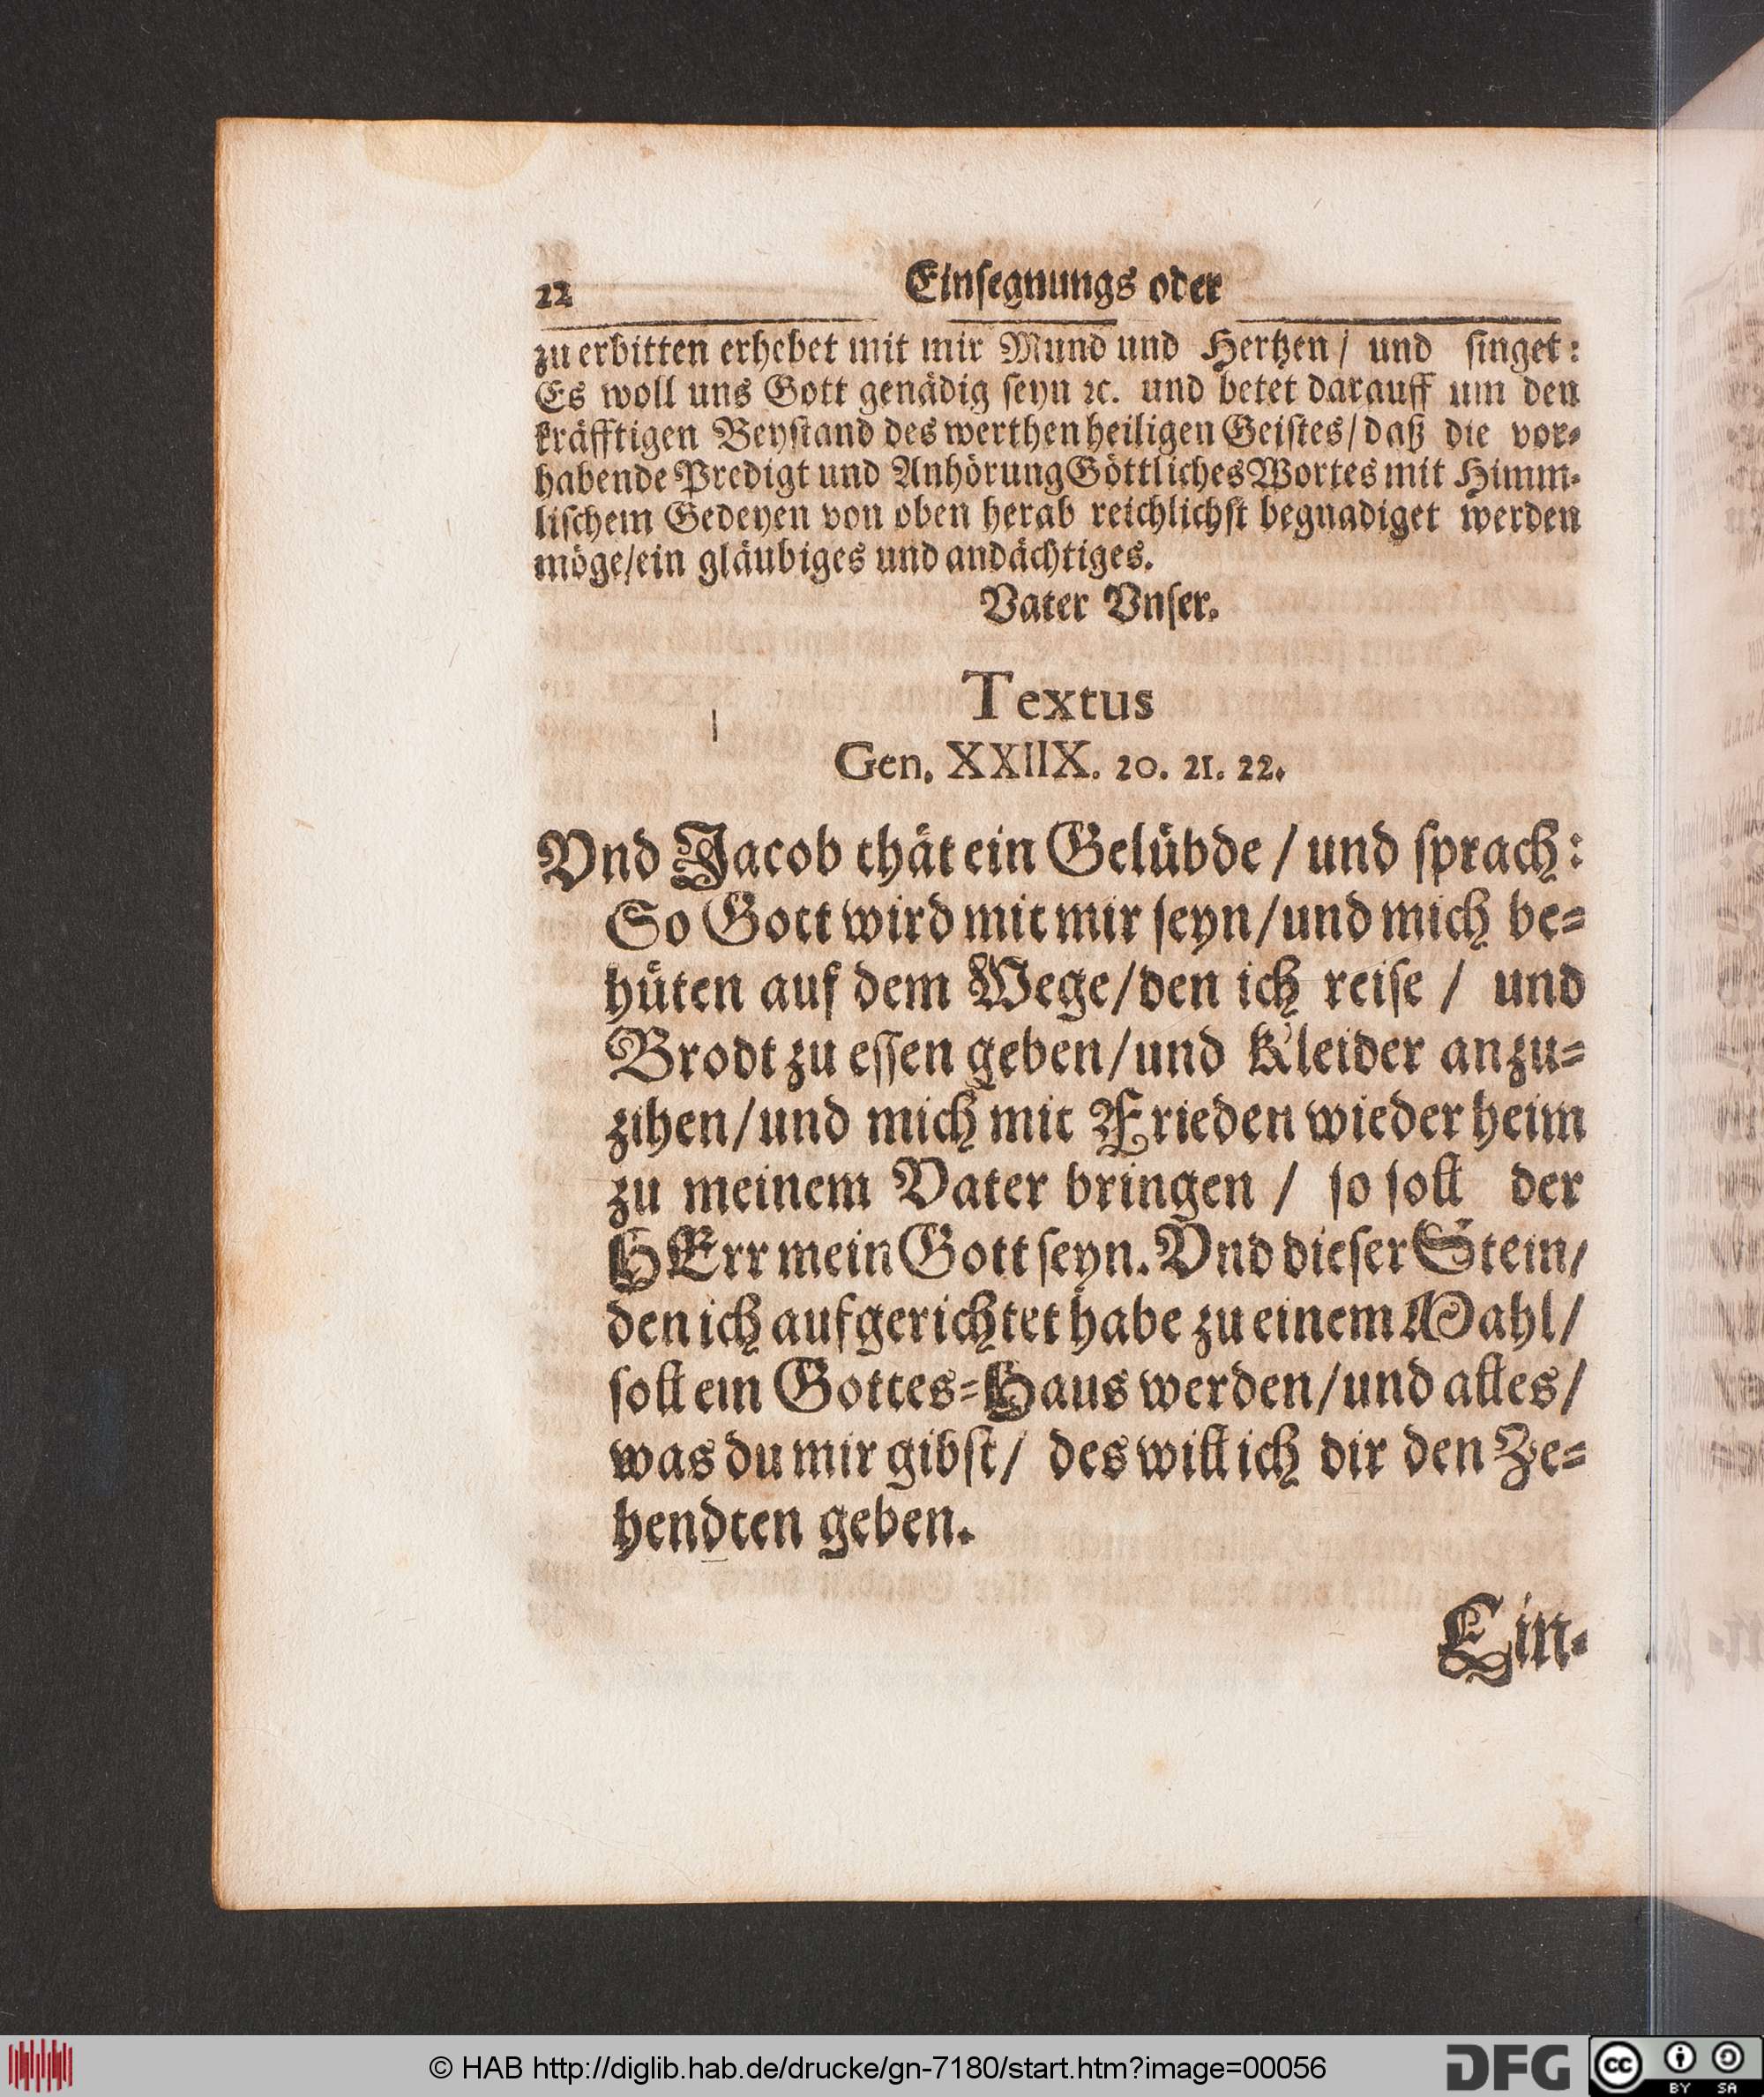 22 Einſegnungs oder
zu erbitten erhebet mit mir Mund und Hertzen / und ſinget:
Es woll uns Gott genädig ſeyn ꝛc. und betet darauff um den
kräfftigen Beyſtand des werthen heiligen Geiſtes / daß die vor-
habende Predigt und Anhörung Göttliches Wortes mit Himm-
liſchem Gedeyen von oben herab reichlichſt begnadiget werden
möge / ein gläubiges und andächtiges.
Vater Vnſer.
Textus
Gen. XXIIX. 20. 21. 22.
Vnd Jacob thät ein Gelübde / und ſprach:
So Gott wird mit mir ſeyn / und mich be-
hüten auf dem Wege / den ich reiſe / und
Brodt zu eſſen geben / und Kleider anzu-
zihen / und mich mit Frieden wieder heim
zu meinem Vater bringen / ſo ſoll der
HErr mein Gott ſeyn. Vnd dieſer Stein /
den ich aufgerichtet habe zu einem Mahl /
ſoll ein Gottes-Haus werden / und alles /
was du mir gibſt / des will ich dir den Ze-
hendten geben.
Ein-
© HAB http://diglib.hab.de/drucke/gn-7180/start.htm?image=00056
DFG
cc BY SA